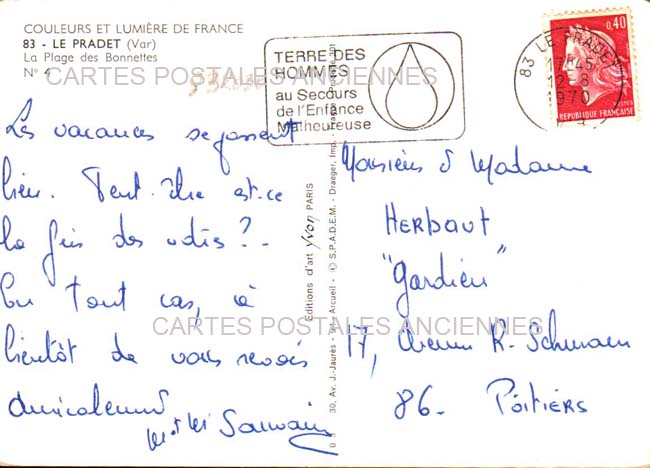 COULEURS ET LUMIÈRE DE FRANCE
83 - LE PRADET (Var)
La Plage des Bonnettes
N° 4
CARTES POSTALES ANCIENNES
TERRE DES
HOMMES
au Secours
de l'Enfance
Malheureuse
83 LE PRADET
17H45
12-8
1970
0,40
POSTES
REPUBLIQUE FRANÇAISE
Les vacances se passent
bien. Peut-être est-ce
la fin des
?-
En tout cas, à
bientôt de vous revoir
amicalement
Editions d'art Yvon PARIS
30, Av. J.-Jaurès - Arcueil - © S.P.A.D.E.M. - Draeger, Imp.
Monsieur & Madame
HERBAUT
"Gardien"
CARTES POSTALES ANCIENNES
17, Avenue R. Schuman
86 - Poitiers